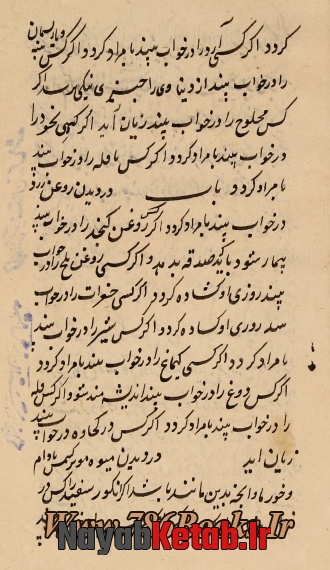 کردد اکر کسی آرد را در خواب بیند بامراد کردد و اکر کسی پنبه و یا ریسمان
را در خواب بیند از دنیاوی را چیزی نیکی رسد اکر
کس محلوج را در خواب بیند زیان آید اکر کسی نخود را
در خواب بیند بامراد کردد اکر کس باقله را در خواب بیند
بامراد کردد باب در دیدن روغن زرد
در خواب بیند بامراد کردد اکر روغن کنجد را در خواب بیند
بیمار شود باید صدقه بدهد و اکر کسی روغن تلخ را در خواب
بیند روزی او کشاده کردد اکر کسی جغرات را در خواب
بیند روزی او کشاده کردد اکر کس شیر را در خواب بیند
بامراد کردد اکر کسی قیماغ را در خواب بیند بامراد کردد
اکر کس دوغ را در خواب بیند اندیشه مند شود اکر کس
را در خواب بیند بامراد کردد اکر کس در کجاوه در خواب بیند
زیان آید در دیدن میوه هر کس بادام
و خورما و آنچه بدین مانند باشد اکر انکور سفید را کس در
Www.786Books.Ir
NayabKetab.Ir